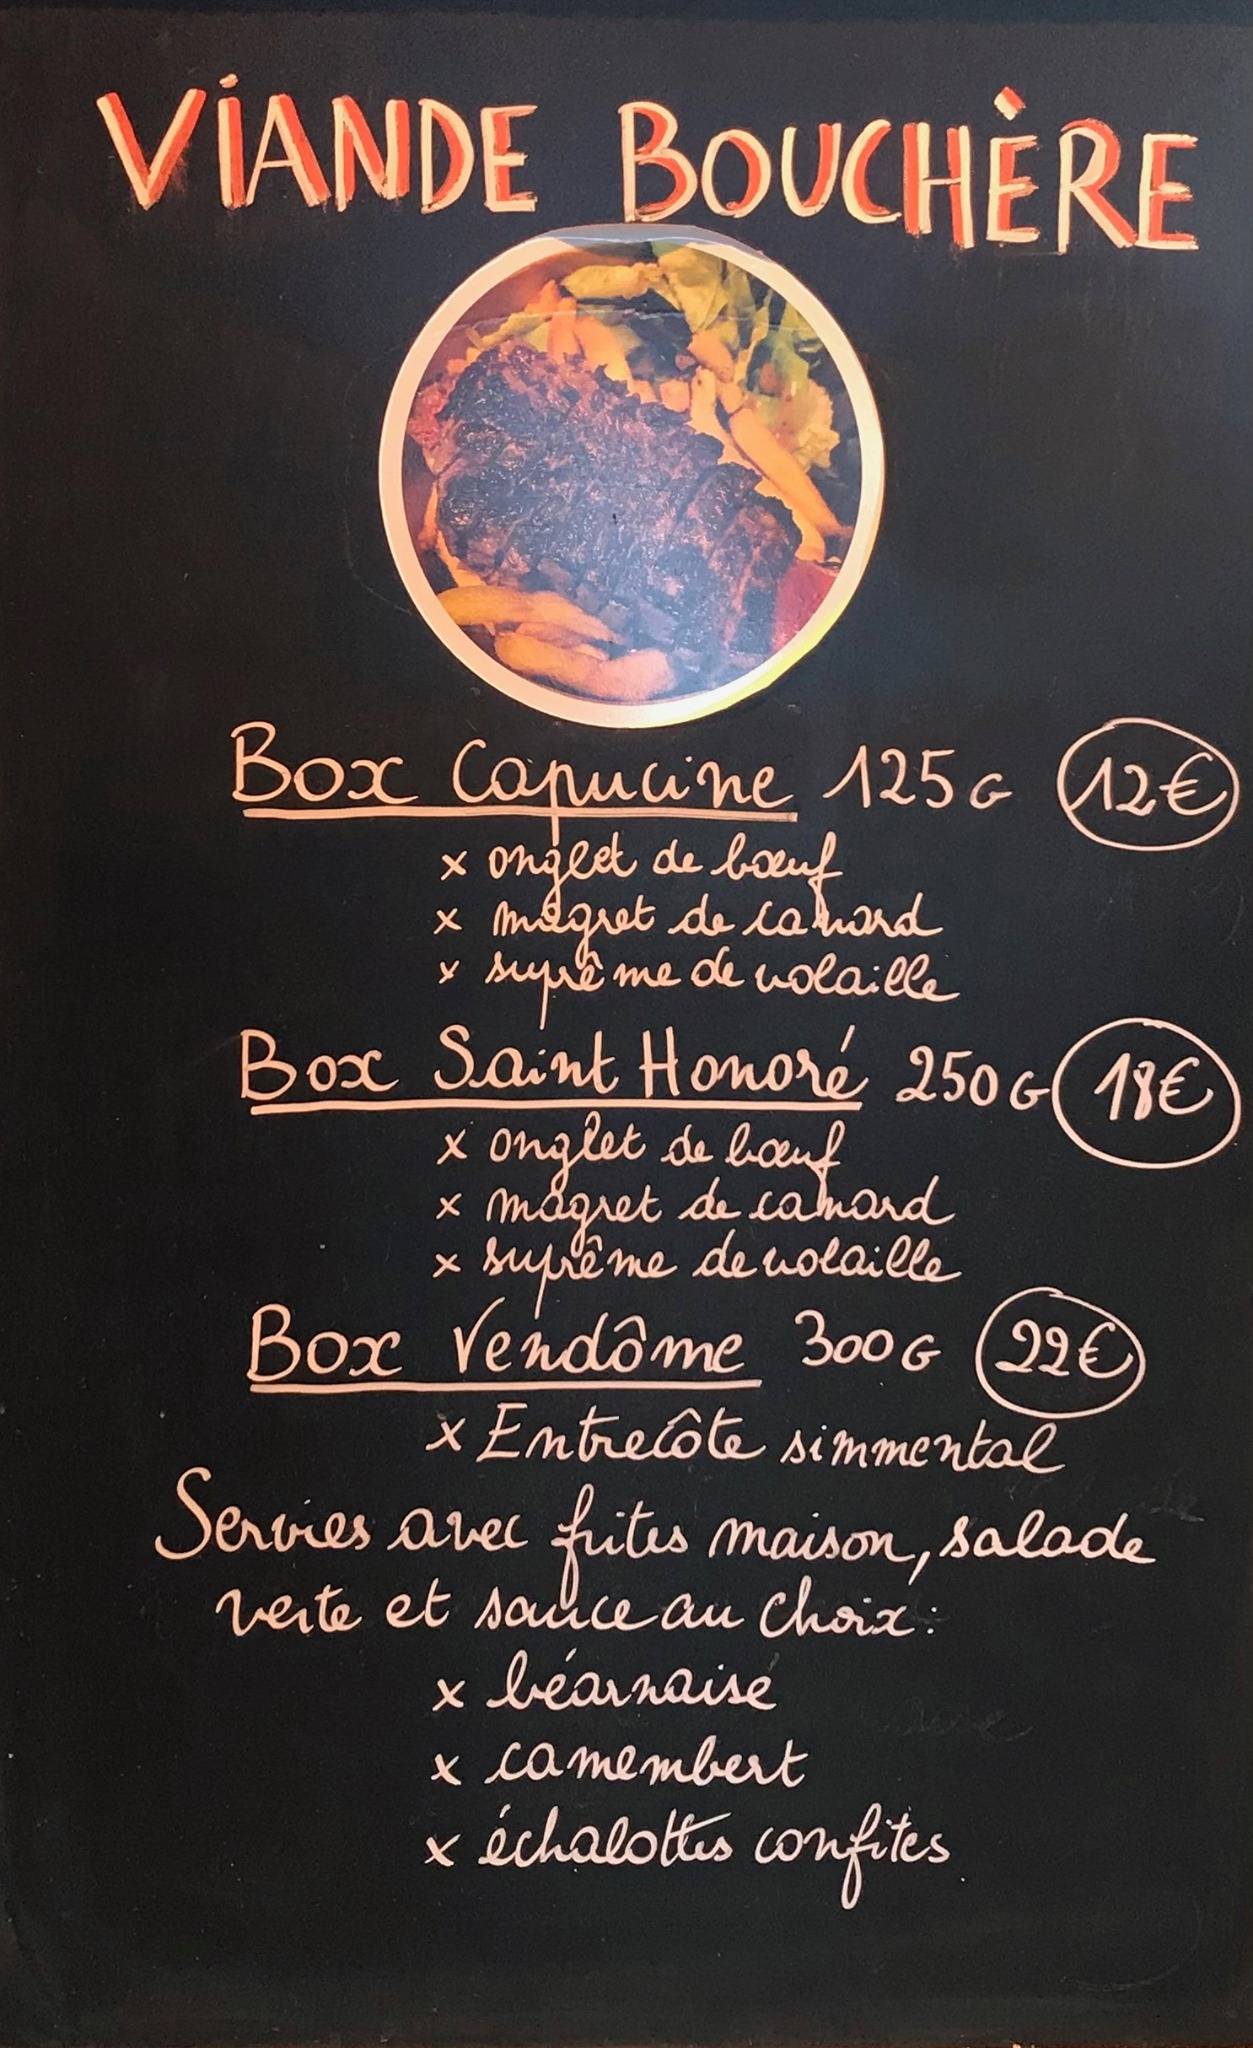 VIANDE BOUCHÈRE
Box Capucine 125G 12€
x onglet de bœuf
x magret de canard
x suprême de volaille
Box Saint Honoré 250G 18€
x onglet de bœuf
x magret de canard
x suprême de volaille
Box Vendôme 300G 22€
x Entrecôte simmental
Servies avec frites maison, salade
verte et sauce au choix:
x béarnaise
x camembert
x échalottes confites